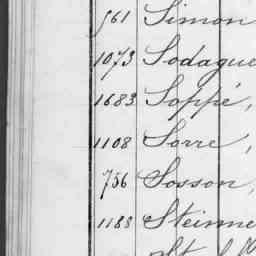 561 Simon
1073 Sodague
1683 Soppé,
1108 Sorre,
756 Sosson,
1188 Steinme